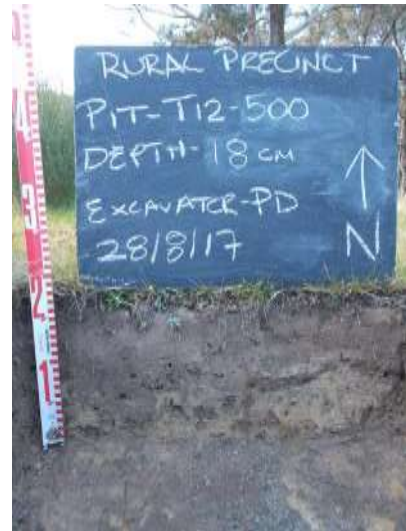 RURAL PRECINCT
PIT-T12-500
DEPTH-18 CM
EXCAVATOR-PD
28/8/17
N
4
3
2
1